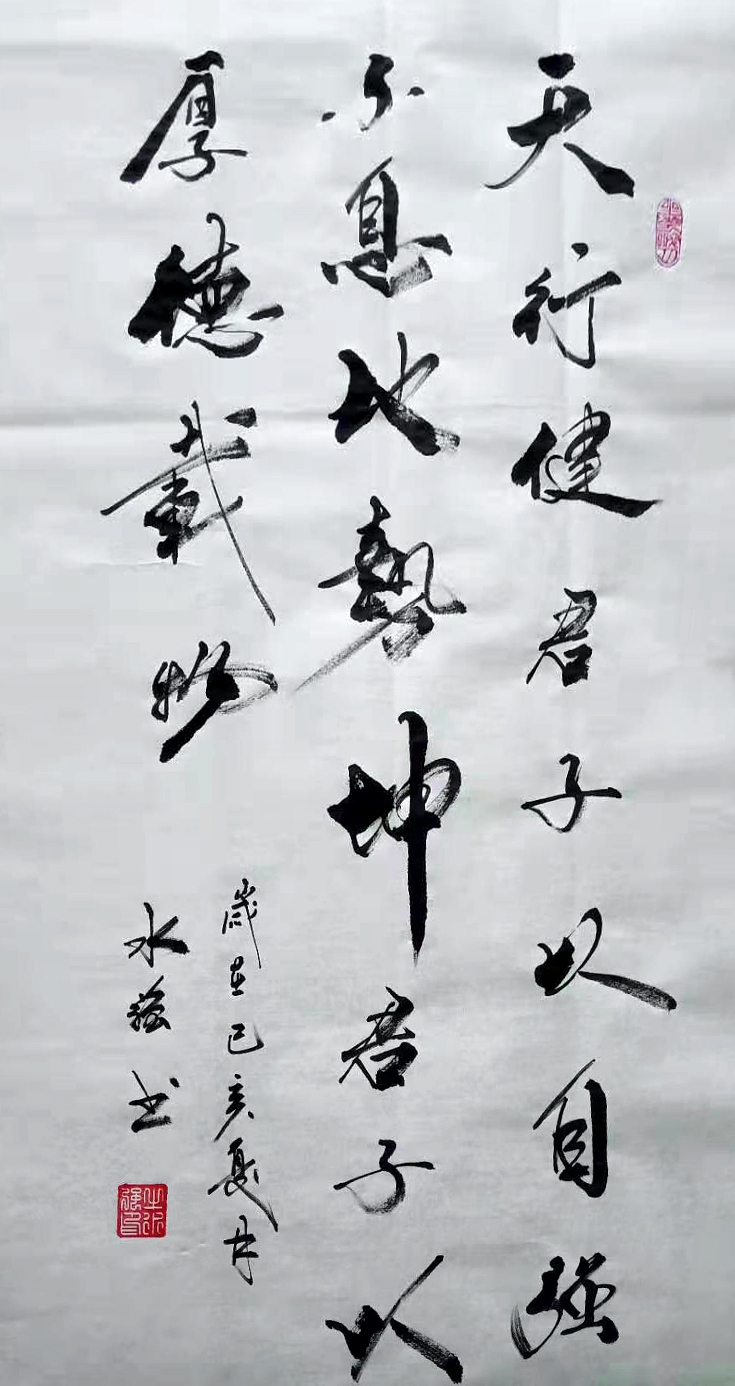 天行健君子以自强
不息地势坤君子以
厚德载物
岁在己亥夏月
水强书